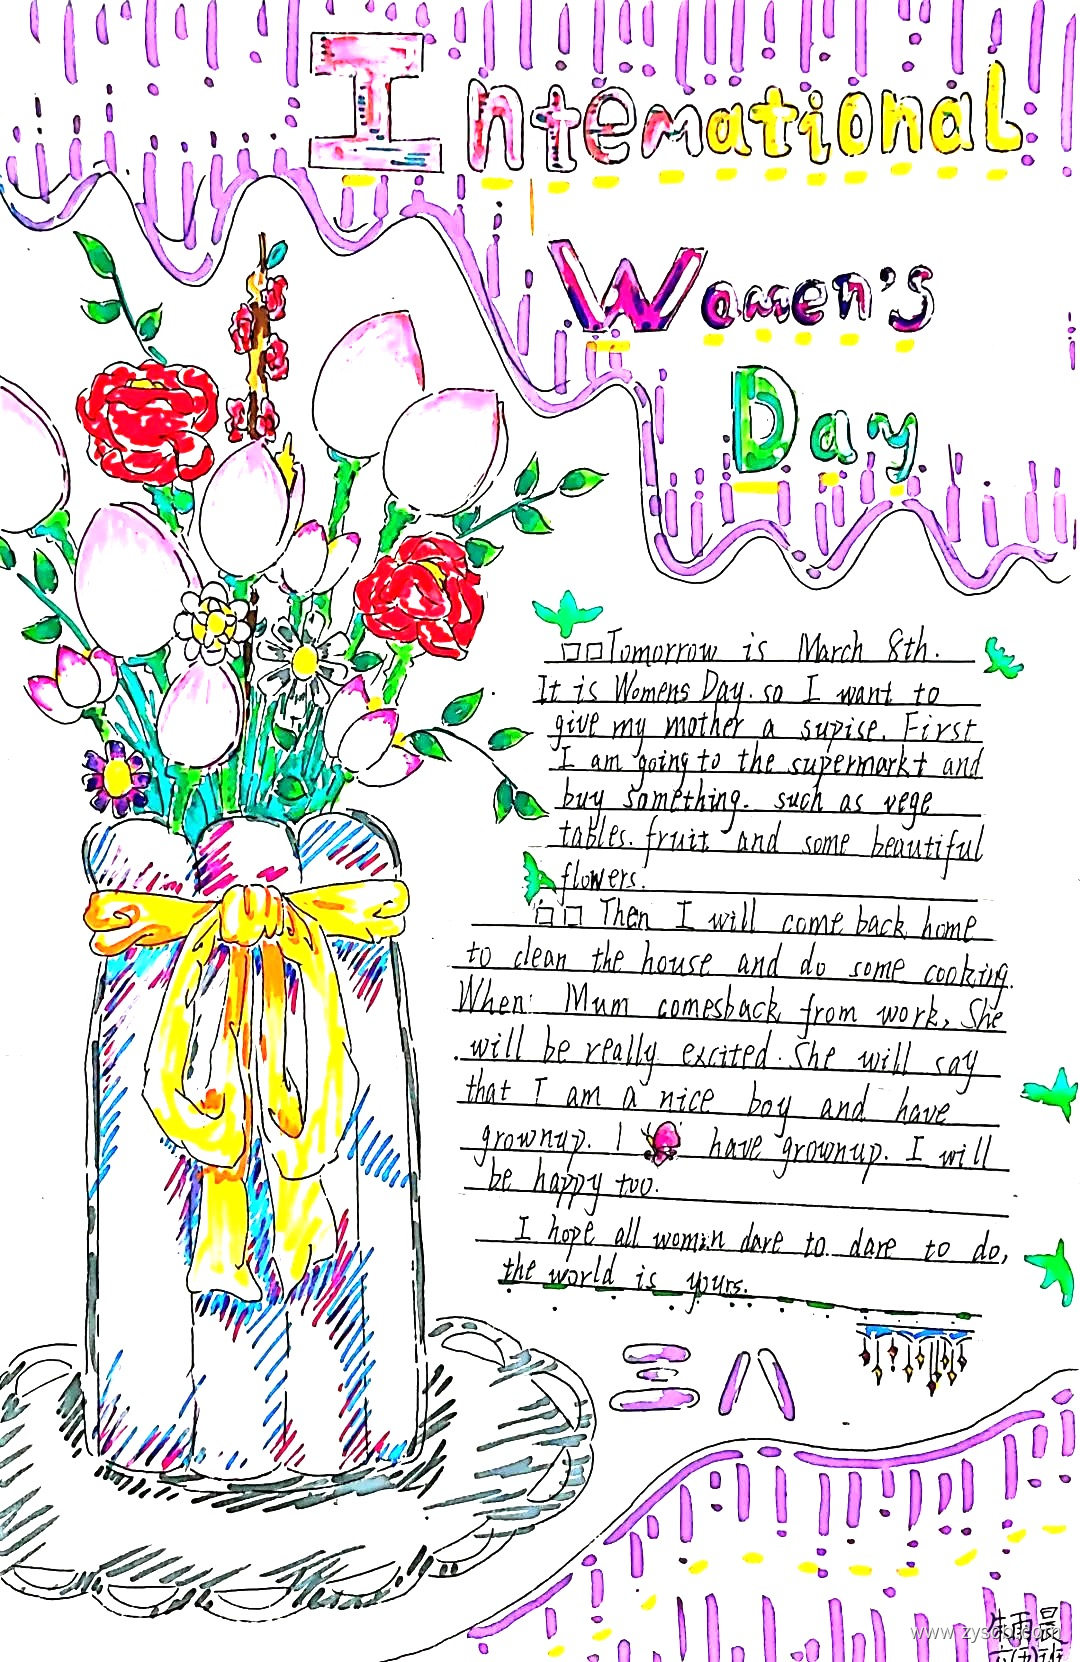 International
Women's
Day
□□Tomorrow is March 8th.
It is Womens Day. so I want to
give my mother a supise. First
I am going to the supermarkt and
buy something. such as vege
tables. fruit and some beautiful
flowers.
□□ Then I will come back home
to clean the house and do some cooking.
When Mum comesback from work, She
will be really excited. She will say
that I am a nice boy and have
grownup. I have grownup. I will
be happy too.
I hope all women dare to dare to do,
the world is yours.
三八
www.zysc
晨
六(九)班